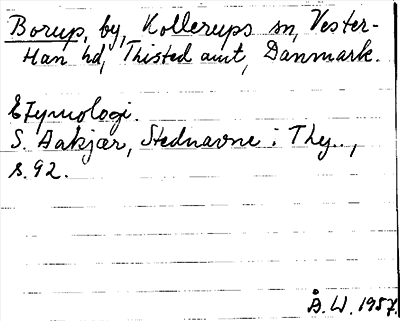 Borup, by, Kollerups sn, Vester-
Han hd, Thisted amt, Danmark.
Etymologi.
S. Aakjær, Stednavne i Thy..,
s. 92.
Å. W. 1957.